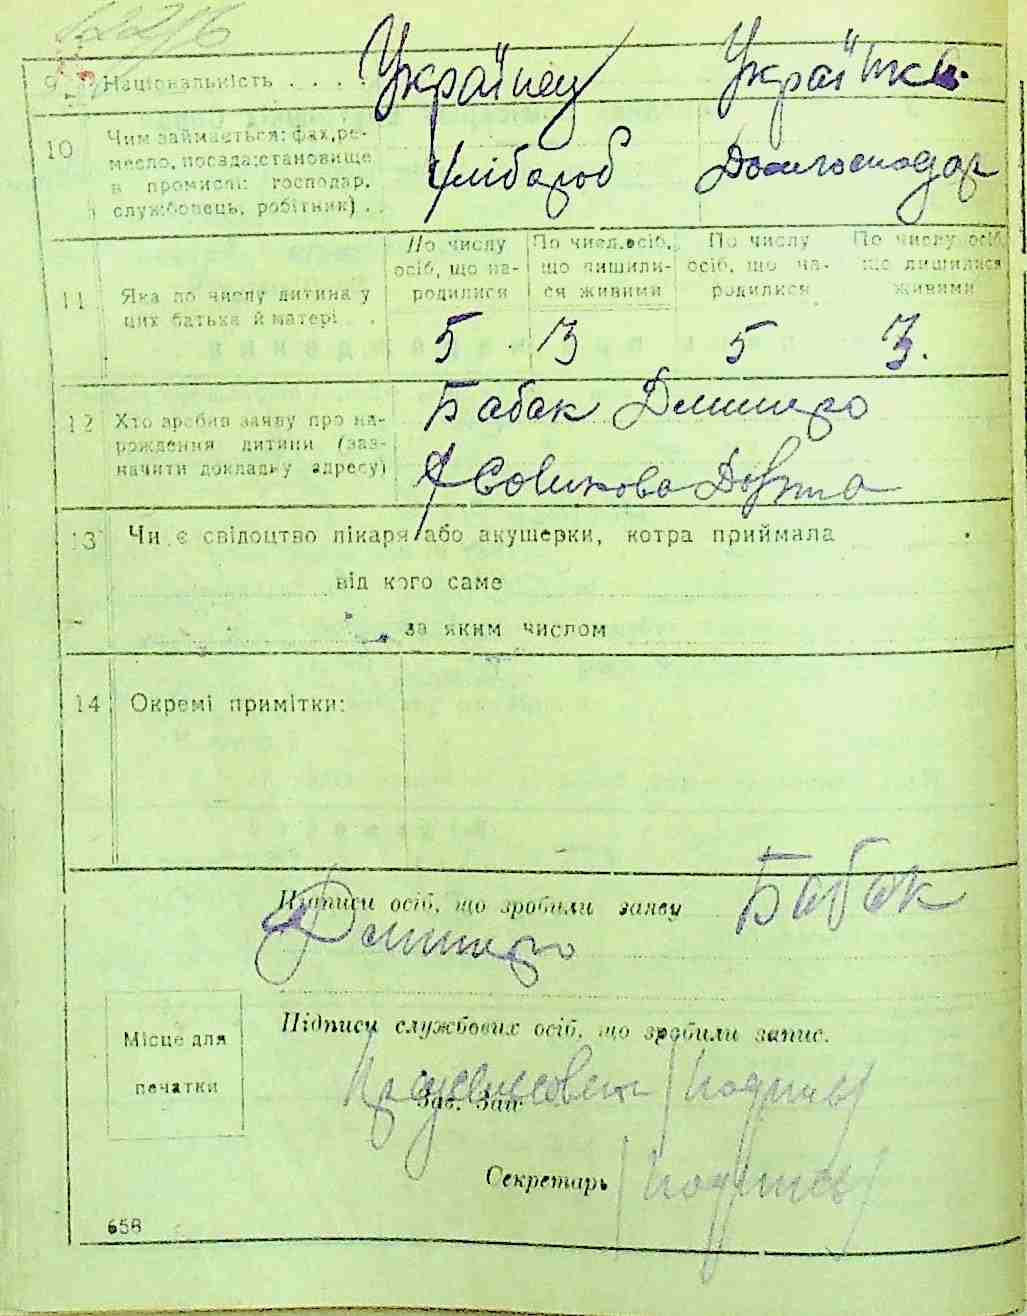 9 Національність . . . . Українец Українка.
10 Чим займається: фах, ре-
месло, посада; становище
в промислі: господар,
службовець, робітник) . . Хлібороб Домогосподар
По числу По числ. осіб, По числу По числу осіб,
осіб, що на- що лишили- осіб, що на- що лишилися
родилися ся живими родилися живими
11 Яка по числу дитина у
цих батька й матері . . 5 3 5 3.
12 Хто зробив заяву про на-
рождення дитини (заз-
начити докладну адресу)
Бабак Дмитро
13 Чи є свідоцтво лікаря або акушерки, котра приймала
від кого саме
за яким числом
14 Окремі примітки:
Підписи осіб, що зробили заяву Бабак
Дмитро
Підписи службових осіб, що зробили запис.
Місце для
печатки
Зав. Заг. /подпись/
Секретарь /подпись/
658